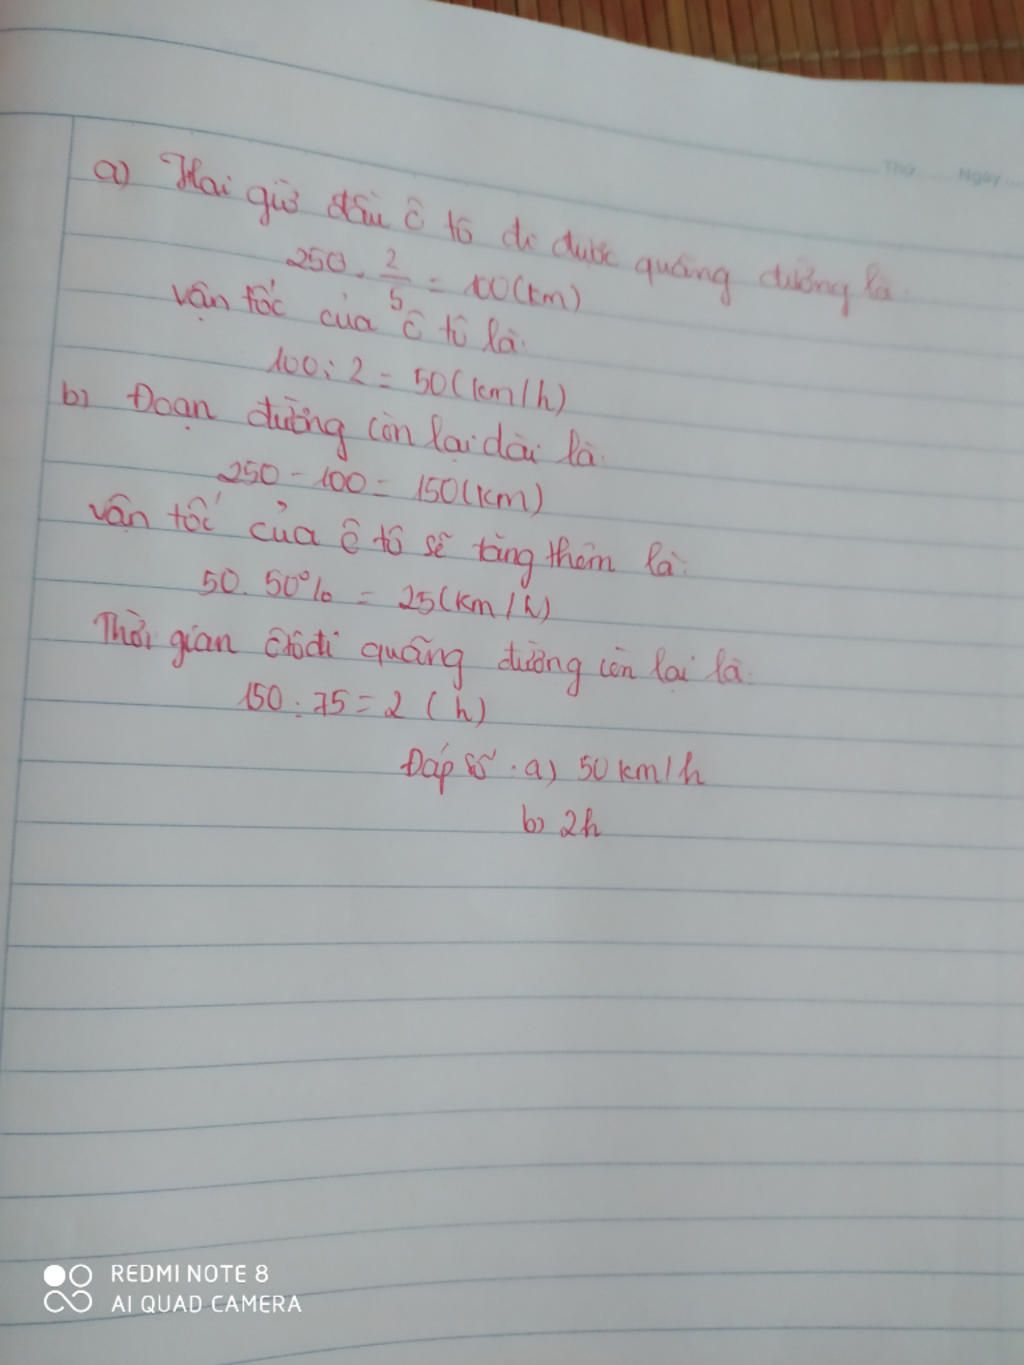 Thứ ..... Ngày ...
a) Hai giờ đầu ô tô đi được quãng đường là.
250 . 2/5 = 100(km)
vận tốc của ô tô là.
100 : 2 = 50(km/h)
b) Đoạn đường còn lại dài là.
250 - 100 = 150(km)
vận tốc của ô tô sẽ tăng thêm là:
50. 50% = 25(km/h)
Thời gian ô tô đi quãng đường còn lại là.
150 : 75 = 2 (h)
Đáp số : a) 50 km/h
b) 2h
REDMI NOTE 8
AI QUAD CAMERA